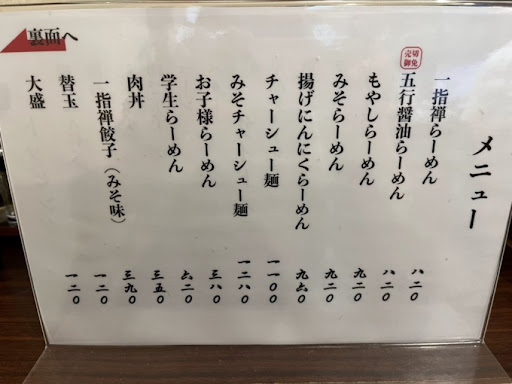 メニュー
一指禅らーめん 八二〇
売切御免
五行醤油らーめん 八二〇
もやしらーめん 九二〇
みそらーめん 九二〇
揚げにんにくらーめん 九六〇
チャーシュー麺 一一〇〇
みそチャーシュー麺 一二八〇
お子様らーめん 三八〇
学生らーめん 六二〇
肉丼 三五〇
一指禅餃子(みそ味) 三九〇
替玉 一二〇
大盛 一二〇
裏面へ